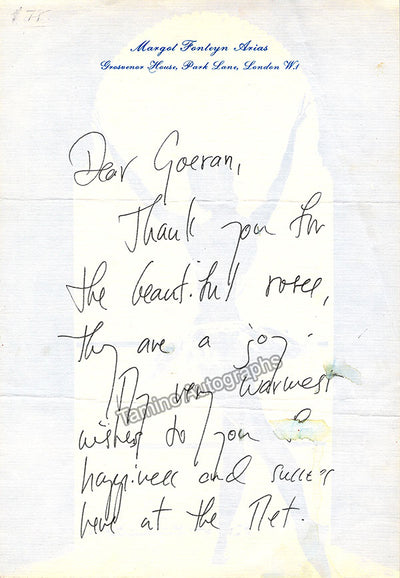 $75.
Margot Fonteyn Arias
Grosvenor House, Park Lane, London W.1
Dear Goeran,
Thank you for
the beautiful roses,
they are a joy.
My very warmest
wishes to you
happiness and success
here at the Met.
Tamino Autographs